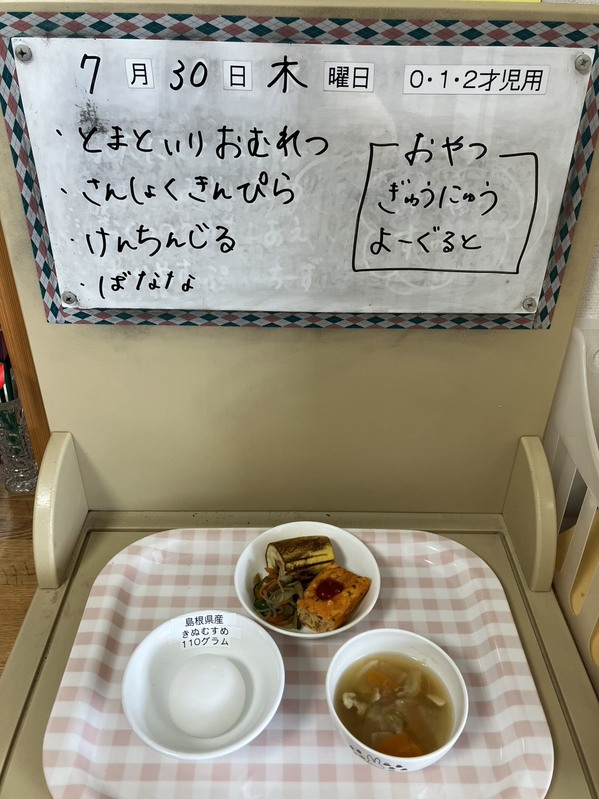 7月30日木曜日 0・1・2才児用
・とまといりおむれつ
・さんしょくきんぴら
・けんちんじる
・ばなな
おやつ
ぎゅうにゅう
よーぐると
島根県産
きぬむすめ
110グラム